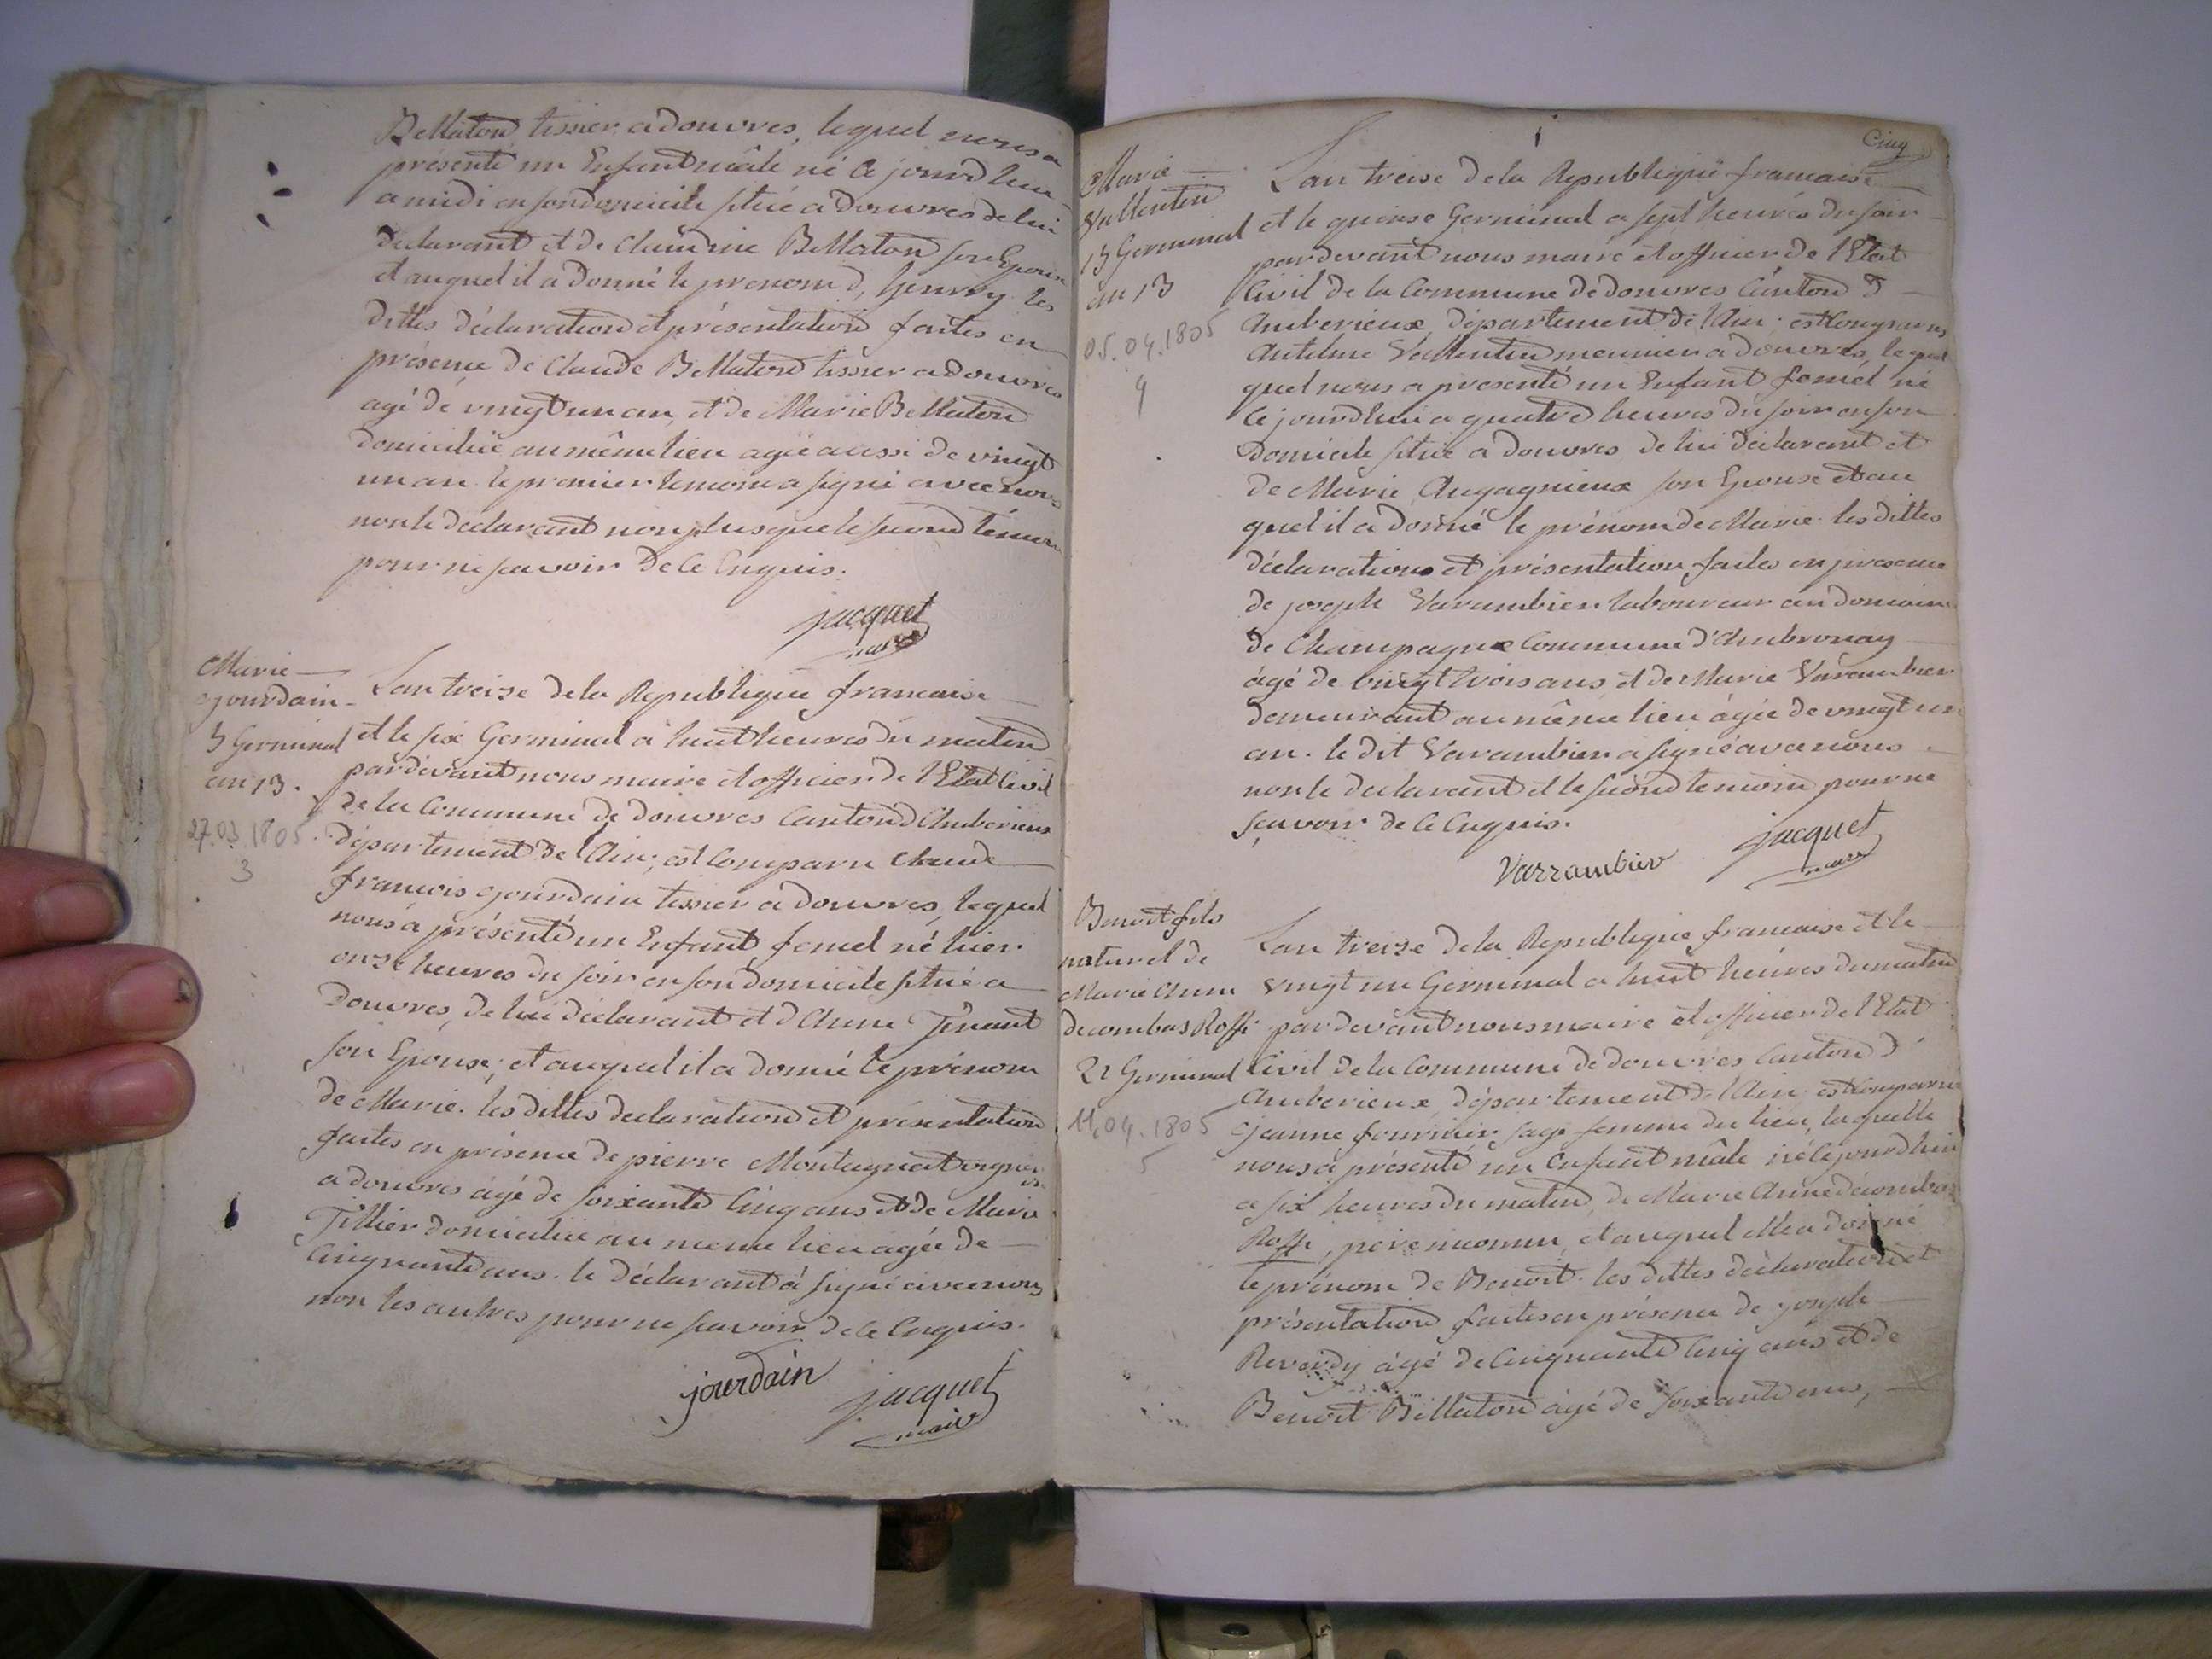 Bellaton tissier a douvres, lequel nous a
présenté un Enfant mâle né ce jourdhui
a midi en son domicile situé a Douvres de lui
declarant et de claudine Bellaton son Epouse
et auquel il a donné le prenom d, henry les
dittes déclaration et présentation faites en
présence de Claude Bellaton tissier a douvres
agé de vingt un an, et de Marie Bellaton
domiciliée au même lieu agée aussi de vingt
un an le premier temoin a signé avec nous
non le declarant non plus que le second témoin
pour ne scavoir de ce Enquis.
jacquet
maire
Marie
Jourdain
5 Germinal
an 13.
27.03.1805.
3
Lan treize de la Republique francaise
et le six Germinal a huit heures du matin
pardevant nous maire et officier de l'Etat Civil
de la Commune de douvres Canton d'Amberieux
département de l'Ain, est Comparu Claude
francois Jourdain tissier a douvres, lequel
nous a présenté un Enfant femel né hier
onze heures du soir en son domicile situé a
Douvres, de lui déclarant et d'Anne Tenant
son Epouse; et auquel il a donné le prénom
de Marie. les dittes declaration et présentation
faites en présence de pierre Montagnat
a douvres âgé de soixante Cinq ans et de Marie
Tillier domiciliée au meme lieu agée de
Cinquante ans. le déclarant a signé avec nous
non les autres pour ne scavoir de ce Enquis.
jourdain
jacquet
maire
Cinq
Marie
Vallentin
15 Germinal
an 13
05.04.1805
4
Lan treise de la Republique francaise
et le quinse Germinal a sept heures du soir
pardevant nous maire et officier de l'Etat
Civil de la Commune de douvres Canton d
Amberieux, département de l'Ain; est Comparu
Antelme Vallentin meunier a douvres, le quel
quel nous a presenté un Enfant femel né
ce jourdhui a quatre heures du soir en son
domicile situé a douvres de lui déclarant et
de Marie Augagnieux son Epouse et au
quel il a donné le prénom de Marie. les dittes
déclarations et présentation faites en presence
de joseph Varambier laboureur au domaine
de Champagne Commune d'Ambronay
âgé de vingt trois ans et de Marie Varambier
demeurant au même lieu âgée de vingt un
an. le dit Varambier a signé avec nous
non le declarant et le second temoin pour ne
scavoir de ce Enquis.
Varrambier
jacquet
maire
Benoit fils
naturel de
Marie Anne
decombas Roffi
21 Germinal
11.04.1805
5
Lan treize de la Republique francaise et le
vingt un Germinal a huit heures du matin
par devant nous maire et officier de l'Etat
Civil de la Commune de douvres Canton d'
Amberieux, département de l'Ain est Comparu
Jeanne fournier sage femme du lieu, laquelle
nous a présenté un Enfant mâle né ce jourdhui
a six heures du matin, de Marie Anne decombas
Roffi, pere inconnu, et auquel elle a donné
le prénom de Benoit. les dittes déclaration et
présentation faites en présence de joseph
Reverdy âgé de Cinquante Cinq ans et de
Benoit Bellaton âgé de soixante ans,